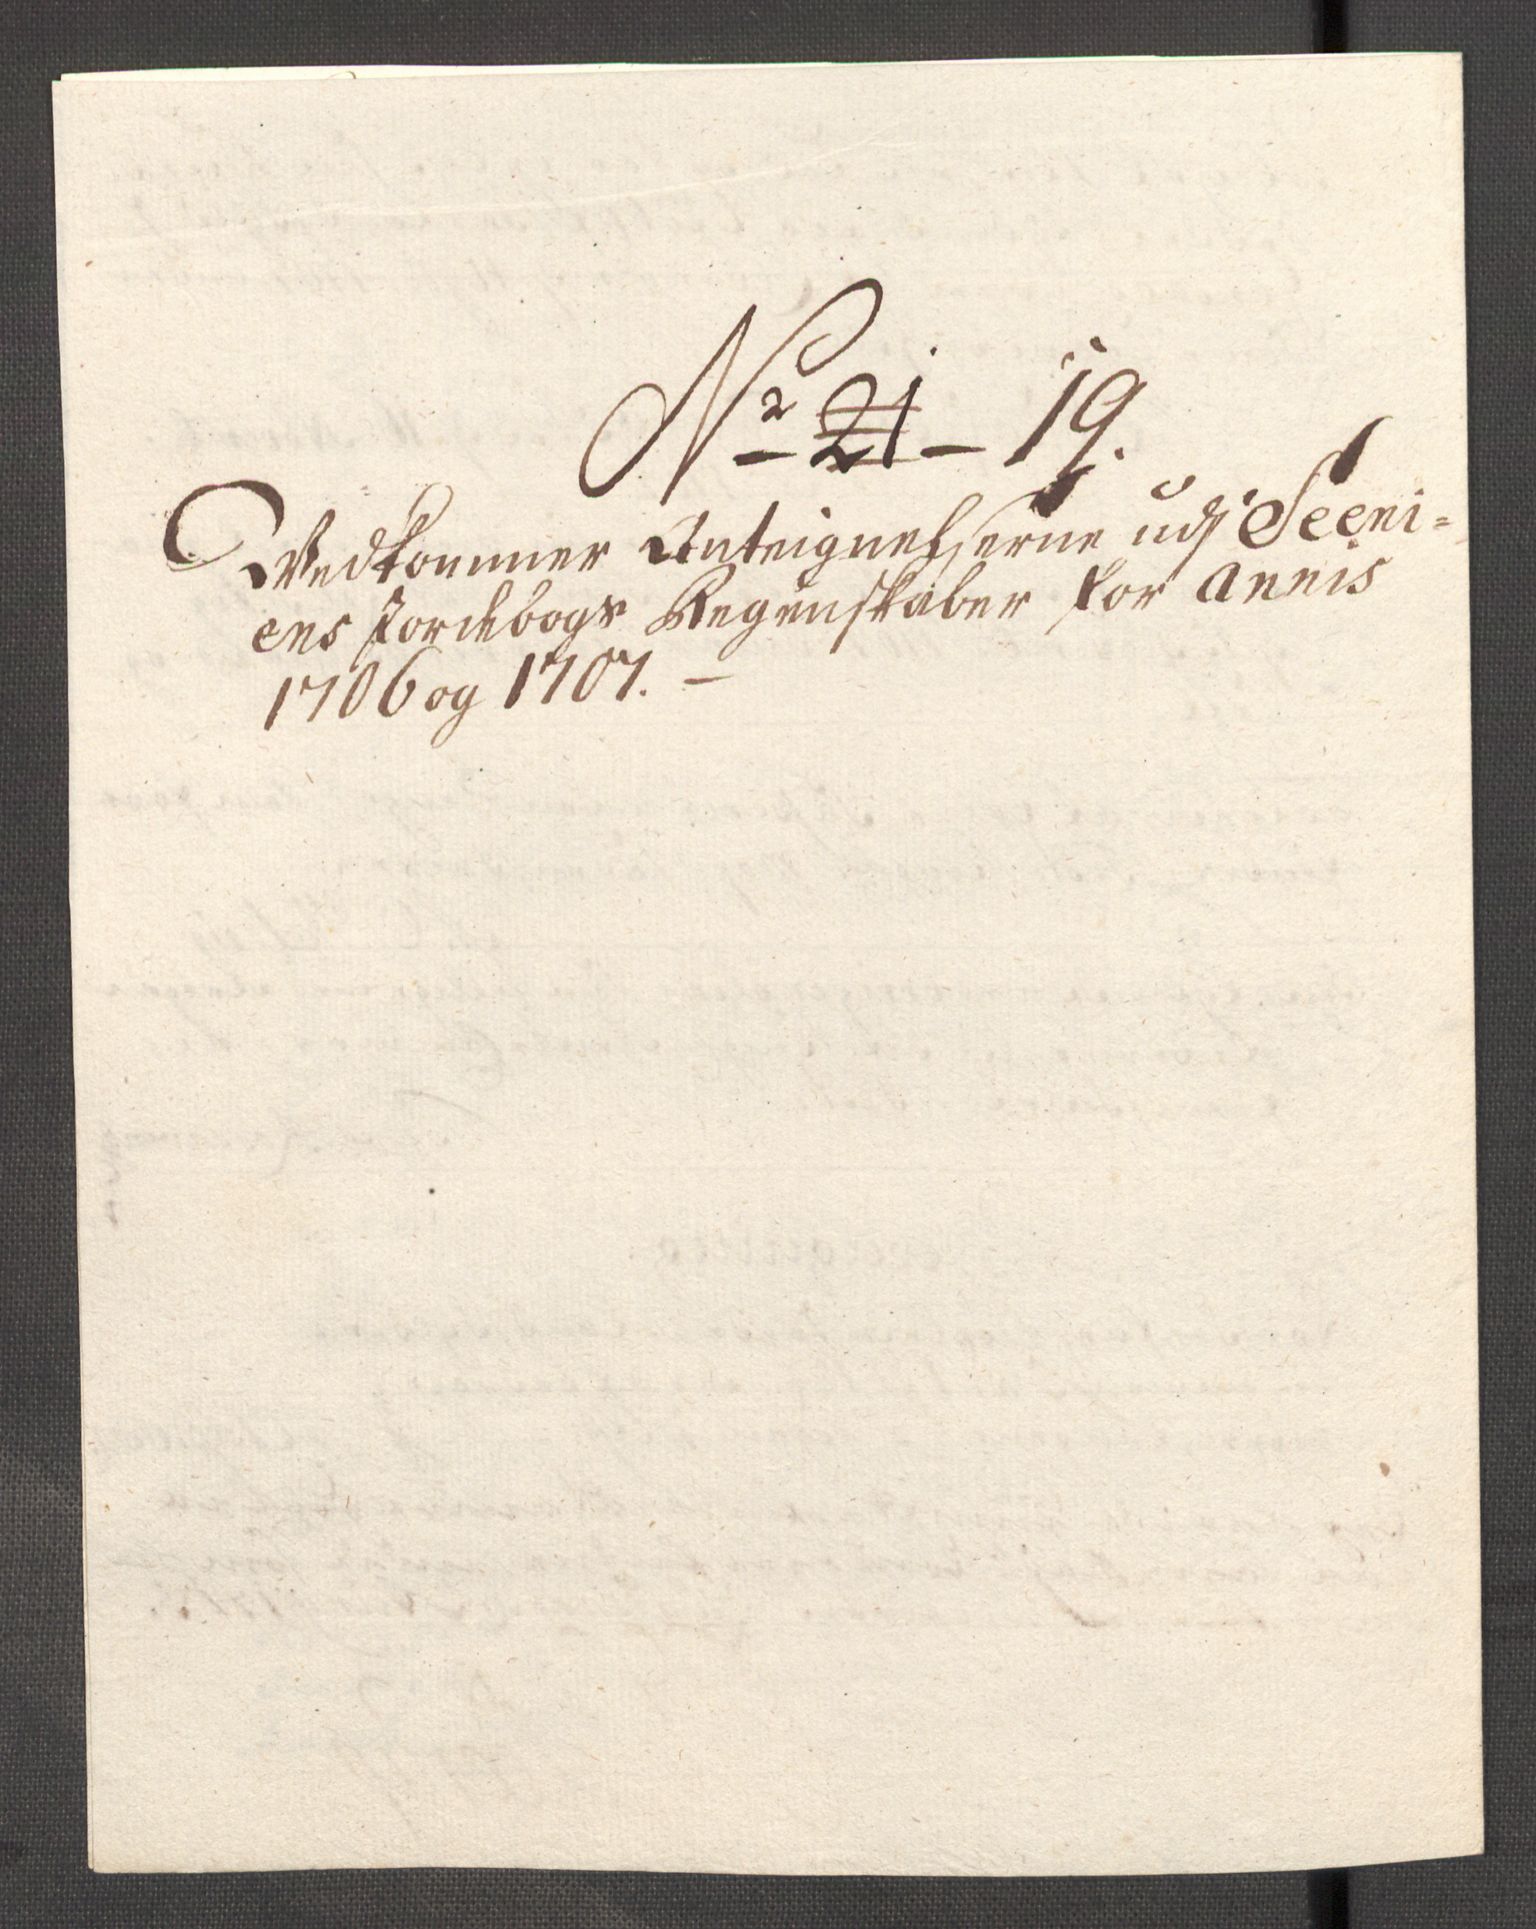 No 21 - 19.
Vedkommer Anteignelserne udj Seeni-
ens Jordebogs Regenskaber for Annis
1706 og 1707. -